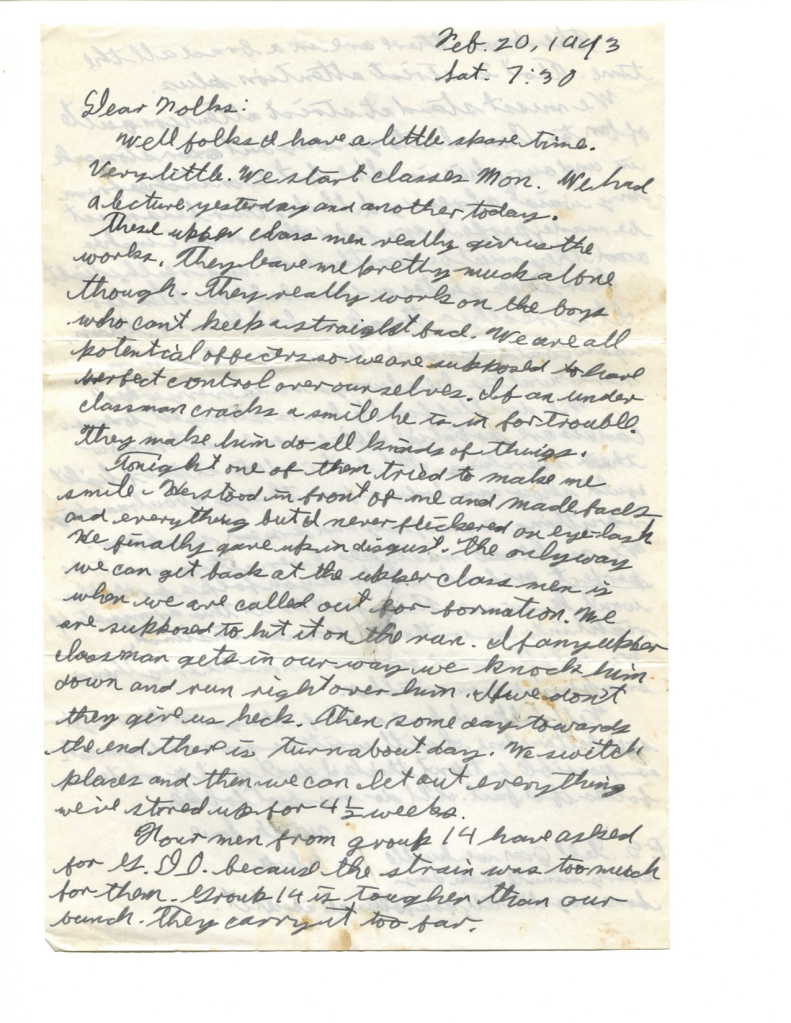 Feb. 20, 1943
Sat. 7:30
Dear Folks:
Well folks I have a little spare time.
Very little. We start classes Mon. We had
a lecture yesterday and another today.
These upper class men really give us the
works. They leave me pretty much alone
though. They really work on the boys
who can't keep a straight face. We are all
potential officers so we are supposed to have
perfect control over ourselves. If an under
classman cracks a smile he is in for trouble.
They make him do all kinds of things.
Tonight one of them tried to make me
smile. He stood in front of me and made faces
and everything but I never flickered an eye-lash
He finally gave up in disgust. The only way
we can get back at the upper class men is
when we are called out for formation. We
are supposed to hit it on the run. If any upper
classman gets in our way we knock him
down and run right over him. If we don't
they give us heck. Then some day towards
the end there is turnabout day. We switch
places and then we can let out everything
we've stored up for 4½ weeks.
Four men from group 14 have asked
for G.D.O. because the strain was too much
for them. Group 14 is tougher than our
bunch. They carry it too far.